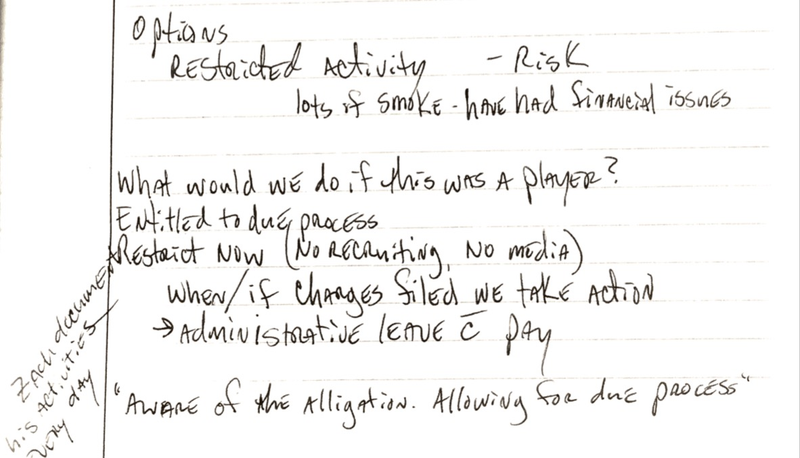 Options
Restricted Activity - Risk
lots if smoke - have had financial issues
What would we do if this was a player?
Entitled to due process
Restrict Now (No recruiting, No media)
When/if charges filed we take action
→ Administrative leave c̄ pay
"Aware of the Alligation. Allowing for due process"
Zach document
his activities
every day